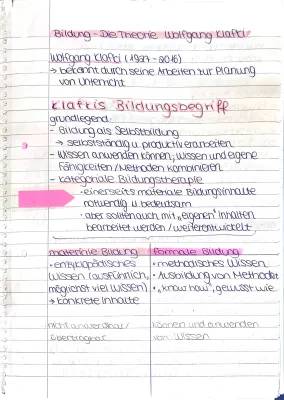 Bildung - Die Theorie Wolfgang Klafki
Wolfgang Klafki (1927 - 2016)
→ bekannt durch seine Arbeiten zur Planung
von Unterricht
Klafkis Bildungsbegriff
grundlegend:
- Bildung als Selbstbildung
→ selbstständig u. produktiv erarbeiten
- Wissen anwenden können, wissen und eigene
Fähigkeiten/Methoden kombinieren
- kategoriale Bildungstherapie
• einerseits materiale Bildungsinhalte
notwendig u. bedeutsam
• aber sollten auch mit "eigenen" Inhalten
bearbeitet werden / weiterentwickelt
materiale Bildung
• enzyklopädisches
Wissen (ausführlich,
möglichst viel Wissen)
→ konkrete Inhalte
nicht anwendbar/
übertragbar
formale Bildung
• methodisches Wissen
• Ausbildung von Methoden
• "know how", gewusst wie
können und anwenden
von Wissen